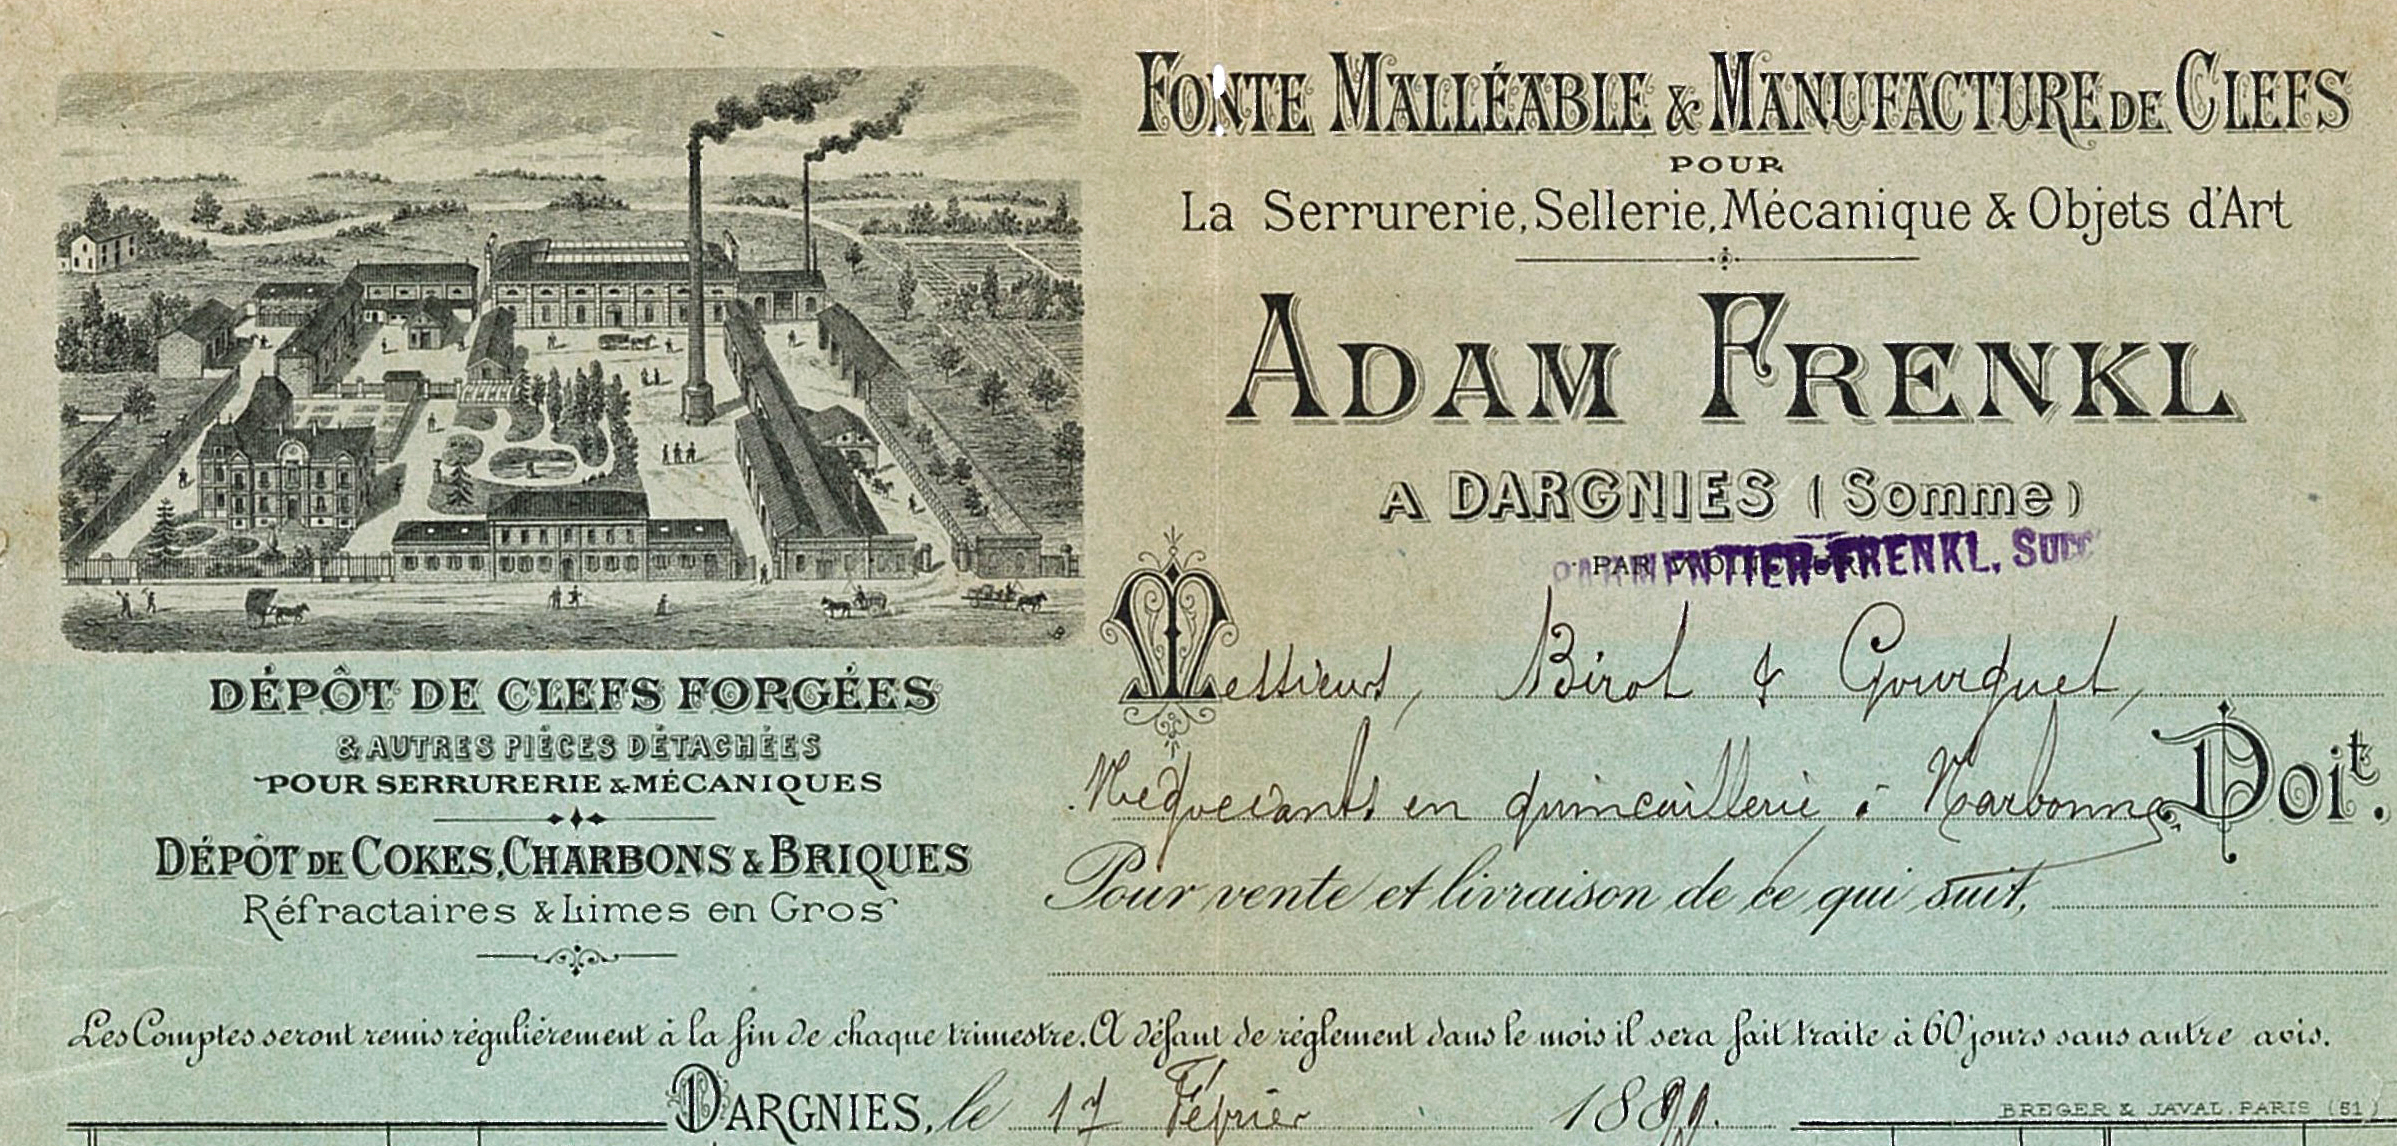 FONTE MALLÉABLE & MANUFACTURE DE CLEFS
POUR
La Serrurerie, Sellerie, Mécanique & Objets d'Art
ADAM FRENKL
A DARGNIES (Somme)
PAR WOINCOURT
PARMENTIER-FRENKL, Succ
Messieurs, Birot & Gourguet,
Négociants en quincaillerie à Narbonne Doit.
Pour vente et livraison de ce qui suit,
DÉPÔT DE CLEFS FORGÉES
& AUTRES PIÉCES DÉTACHÉES
POUR SERRURERIE & MÉCANIQUES
DÉPÔT DE COKES, CHARBONS & BRIQUES
Réfractaires & Limes en Gros
Les Comptes seront remis régulièrement à la fin de chaque trimestre. A défaut de réglement dans le mois il sera fait traite à 60 jours sans autre avis.
DARGNIES, le 17 Février
BREGER & JAVAL. PARIS (51)